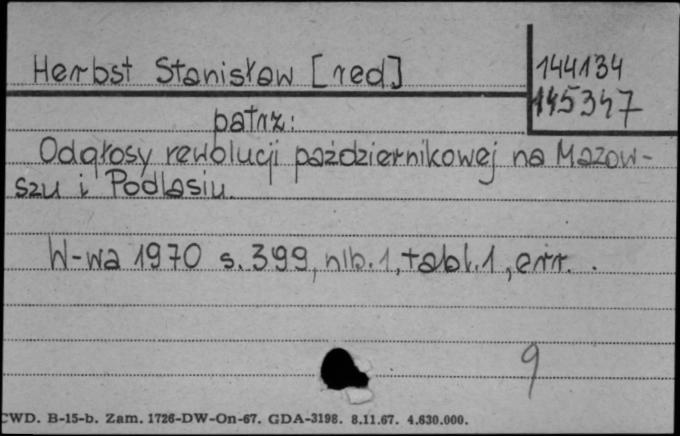 Herbst Stanisław [red]
144134
145347
patrz:
Odgłosy rewolucji październikowej na Mazow-
szu i Podlasiu.
W-wa 1970 s. 399, nlb. 1, tabl. 1, err. .
9
CWD. B-15-b. Zam. 1726-DW-On-67. GDA-3198. 8.11.67. 4.630.000.